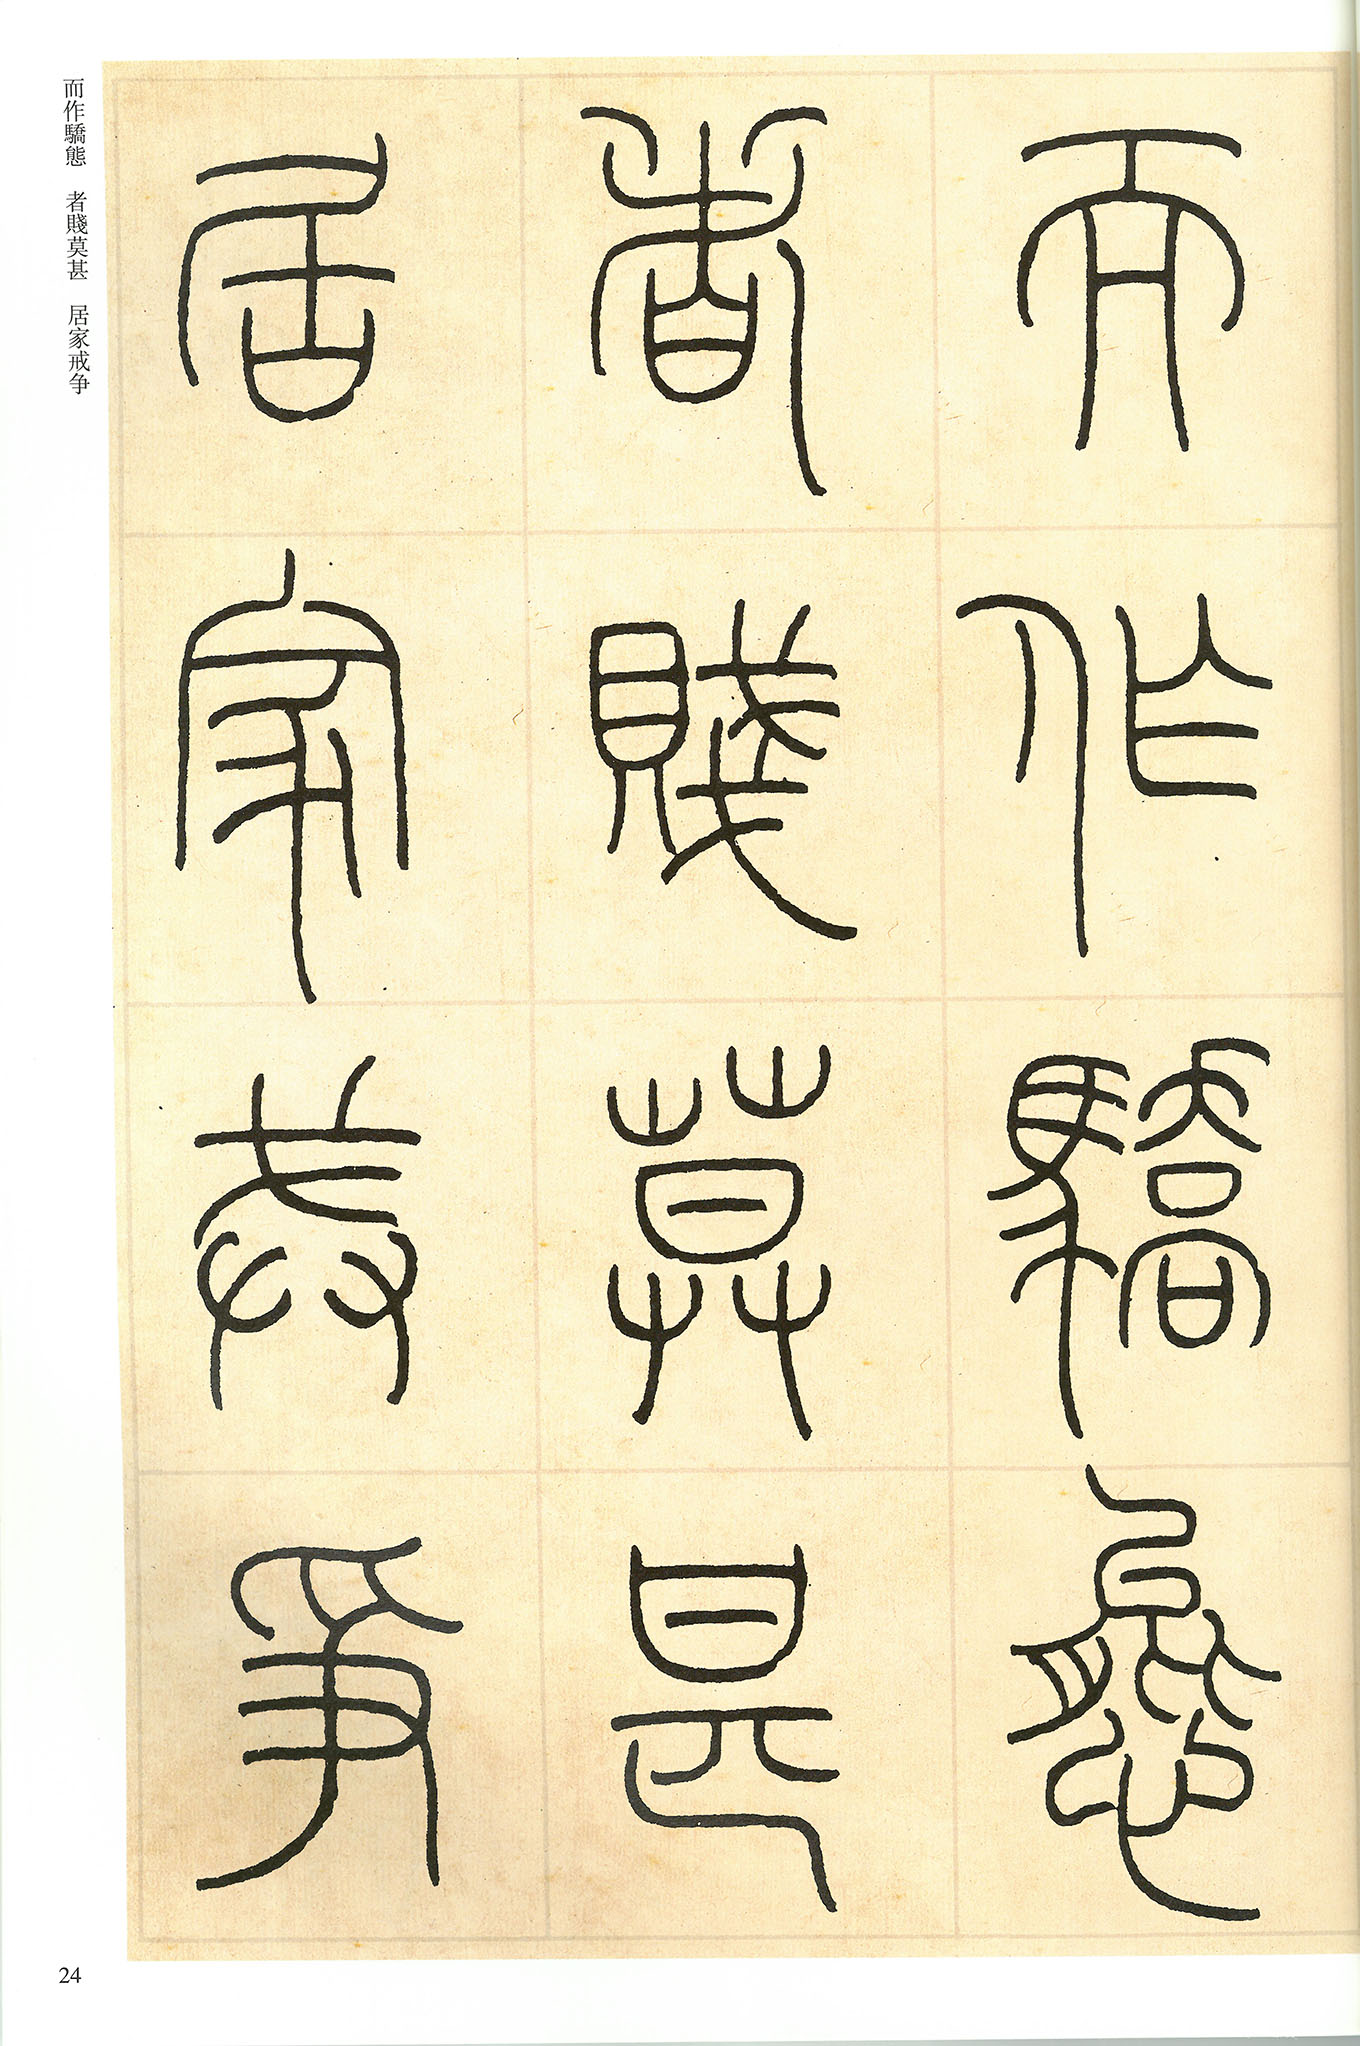 而作驕態
者賤莫甚
居家戒爭
而作驕態 者賤莫甚 居家戒争
24